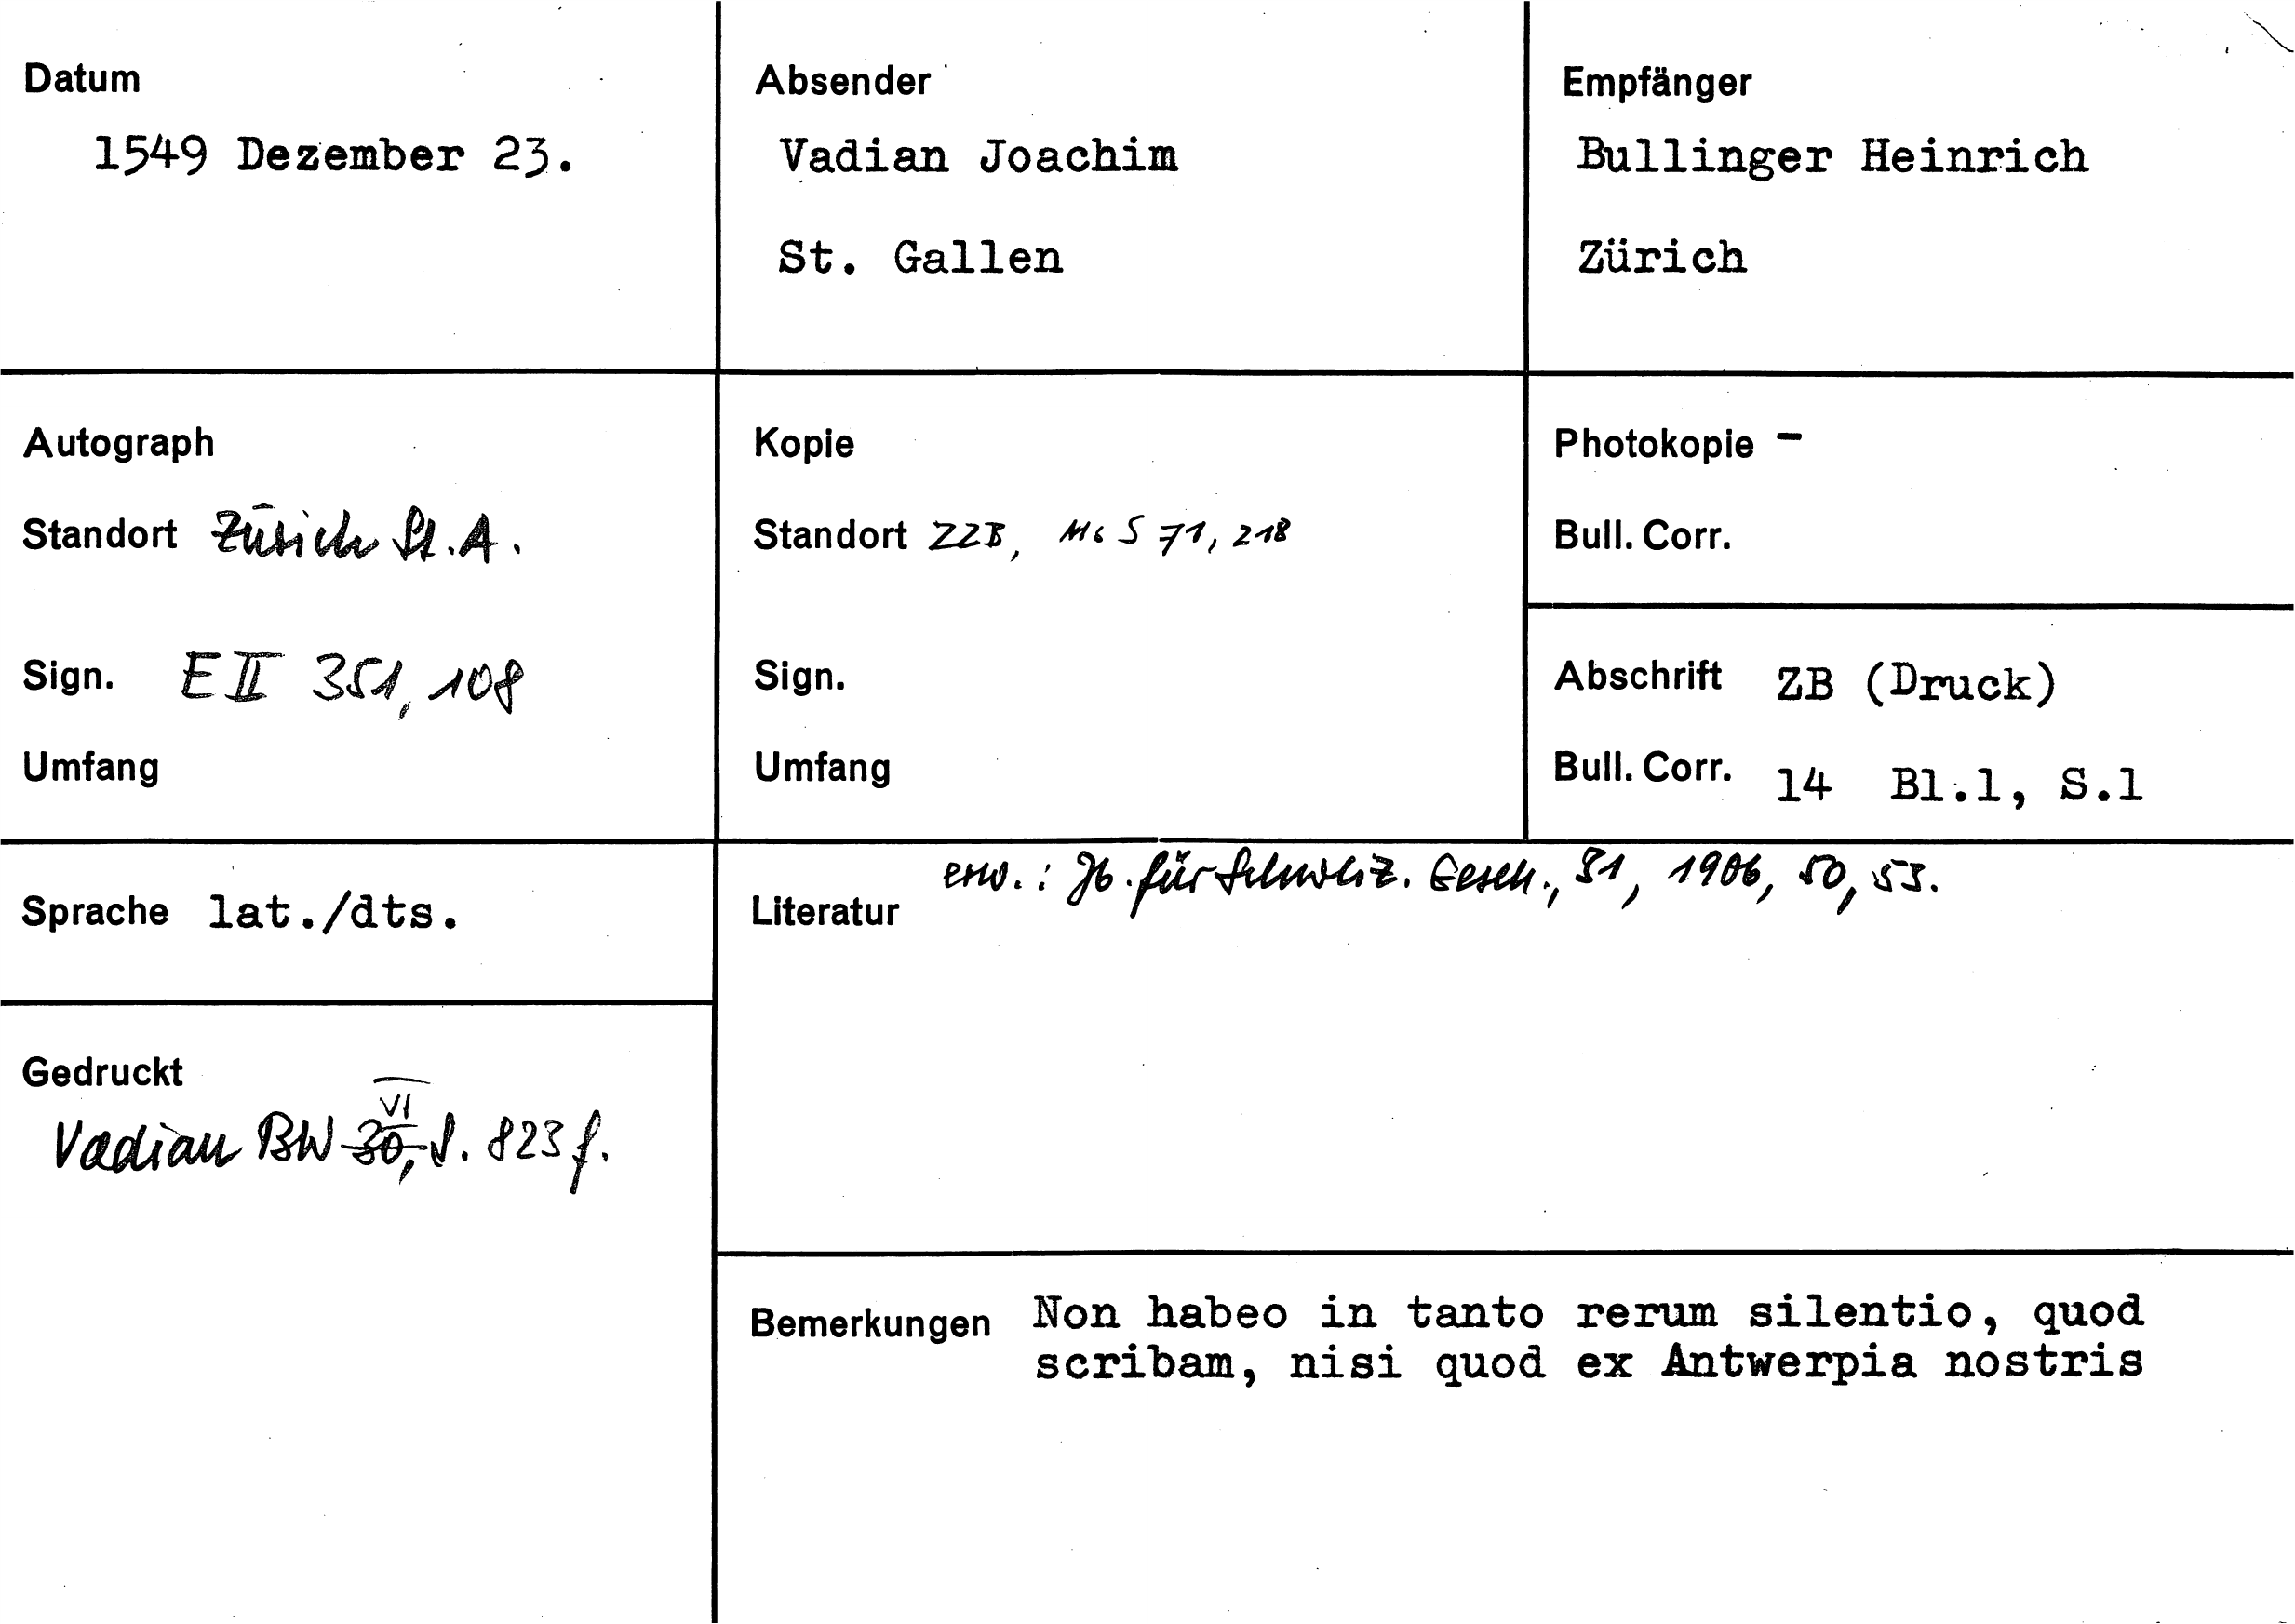 Datum
1549 Dezember 23.
Absender
Vadian Joachim
St. Gallen
Empfänger
Bullinger Heinrich
Zürich
Autograph
Standort Zürich St.A.
Sign. E II 351, 108
Umfang
Kopie
Standort ZZB, Ms S 71, 218
Sign.
Umfang
Photokopie -
Bull. Corr.
Abschrift ZB (Druck)
Bull. Corr. 14 Bl.1, S.1
Sprache lat./dts.
Literatur erw.: Jb. für Schweiz. Gesch., 31, 1906, 50, 53.
Gedruckt
VI
Vadian BW 30, S. 823 f.
Bemerkungen Non habeo in tanto rerum silentio, quod
scribam, nisi quod ex Antwerpia nostris